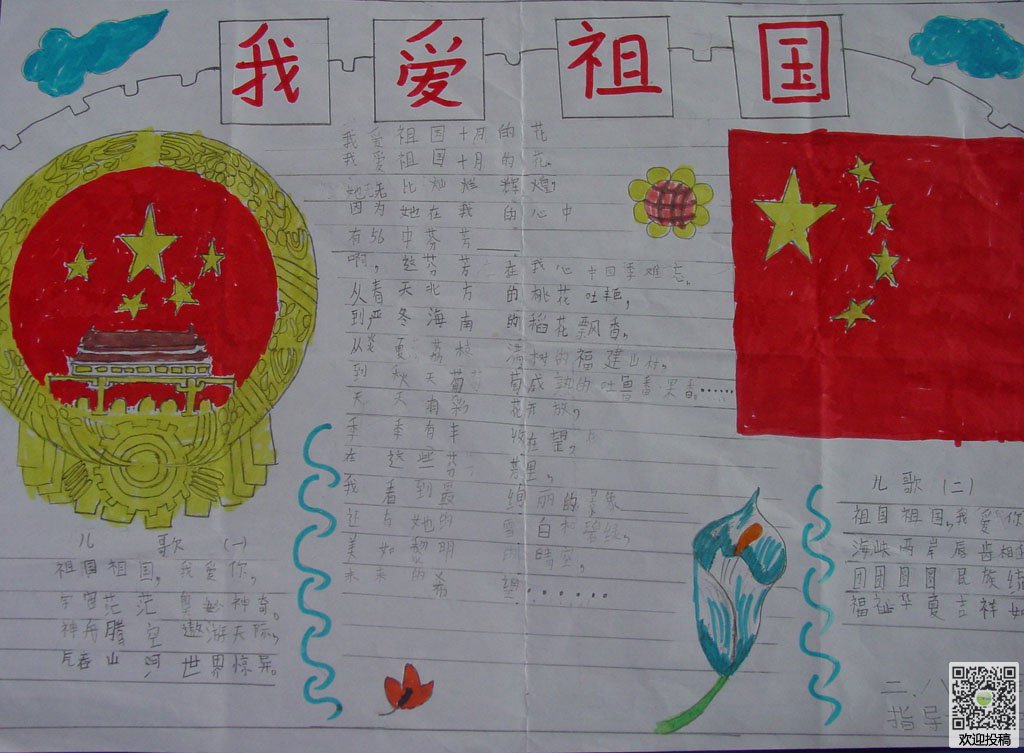 我爱祖国
我爱祖国十月的花
我爱祖国十月的花
她 比灿烂辉煌,
因为她在我的心中
有56中芬芳
啊,这芬芳在我心中四季难忘,
从春天北方的桃花吐艳,
到严冬海南的稻花飘香,
从炎夏荔枝满树的福建山村,
到秋天葡萄成熟的吐鲁番果香……
天天有彩花开放,
季季有丰收在望,
在这些芬芳里,
我看到最绚丽的景象
还有她的雪白和碧绿,
美如黎明的晴空,
未来的希
儿歌(一)
祖国祖国,我爱你,
宇宙茫茫奥妙神奇。
神舟腾空遨游天际,
气吞山河世界惊异。
儿歌(二)
祖国祖国,我爱你
海峡两岸唇齿相
团团圆圆民族
福祉华夏吉祥如
二、八
指导
欢迎投稿